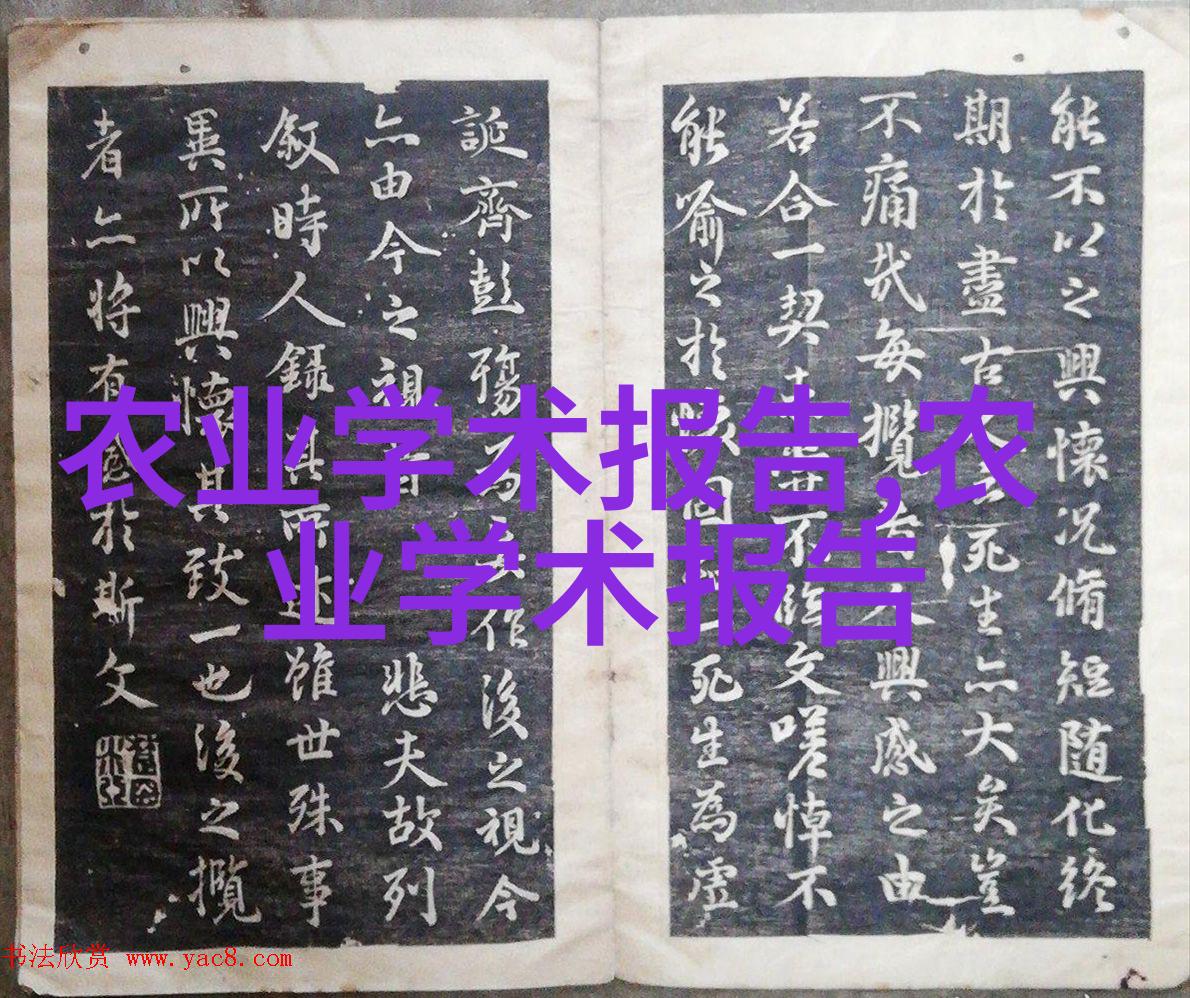 农业学术报告,农
业学术报告
能不以之興懷况脩短随化終
期於盡古人云死生亦大矣豈
不痛哉每攬昔人興感之由
若合一契未嘗不臨文嗟悼不
能喻之於懷固知一死生為虛
誕齊彭殤為妄作後之視今
亦由今之視昔悲夫故列
敘時人錄其所述雖世殊事
異所以興懷其致一也後之攬
者亦将有感於斯文
书法欣赏 www.yac8.com